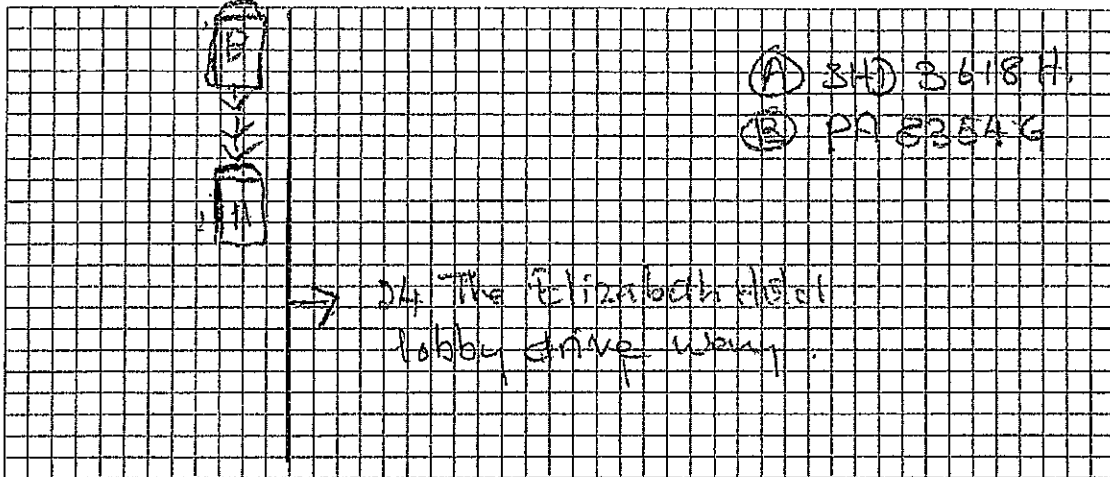 B
A
Ⓐ SHD 3618 H.
Ⓑ PA 8354 G
24 The Elizabeth Hotel
lobby drive way.